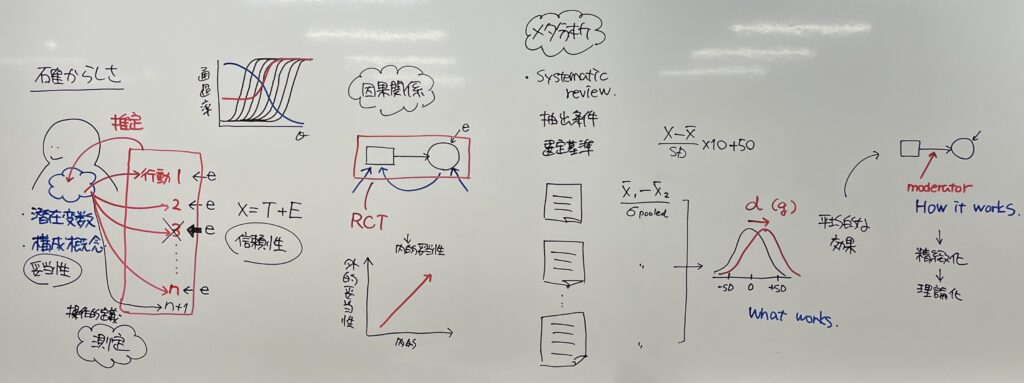 確からしさ
推定
行動1
e
2
e
3
e
n
e
n+1
・潜在変数
・構成概念
妥当性
操作的定義
測定
通過率
θ
X=T+E
信頼性
因果関係
e
RCT
内的妥当性
外的妥当性
内的
メタ分析
・Systematic
review.
抽出条件
選定基準
X-X̄/SD ×10+50
X̄₁-X̄₂/σpooled
〃
〃
d (g)
-SD 0 +SD
What works.
平均的な
効果
moderator
How it works.
精緻化
理論化